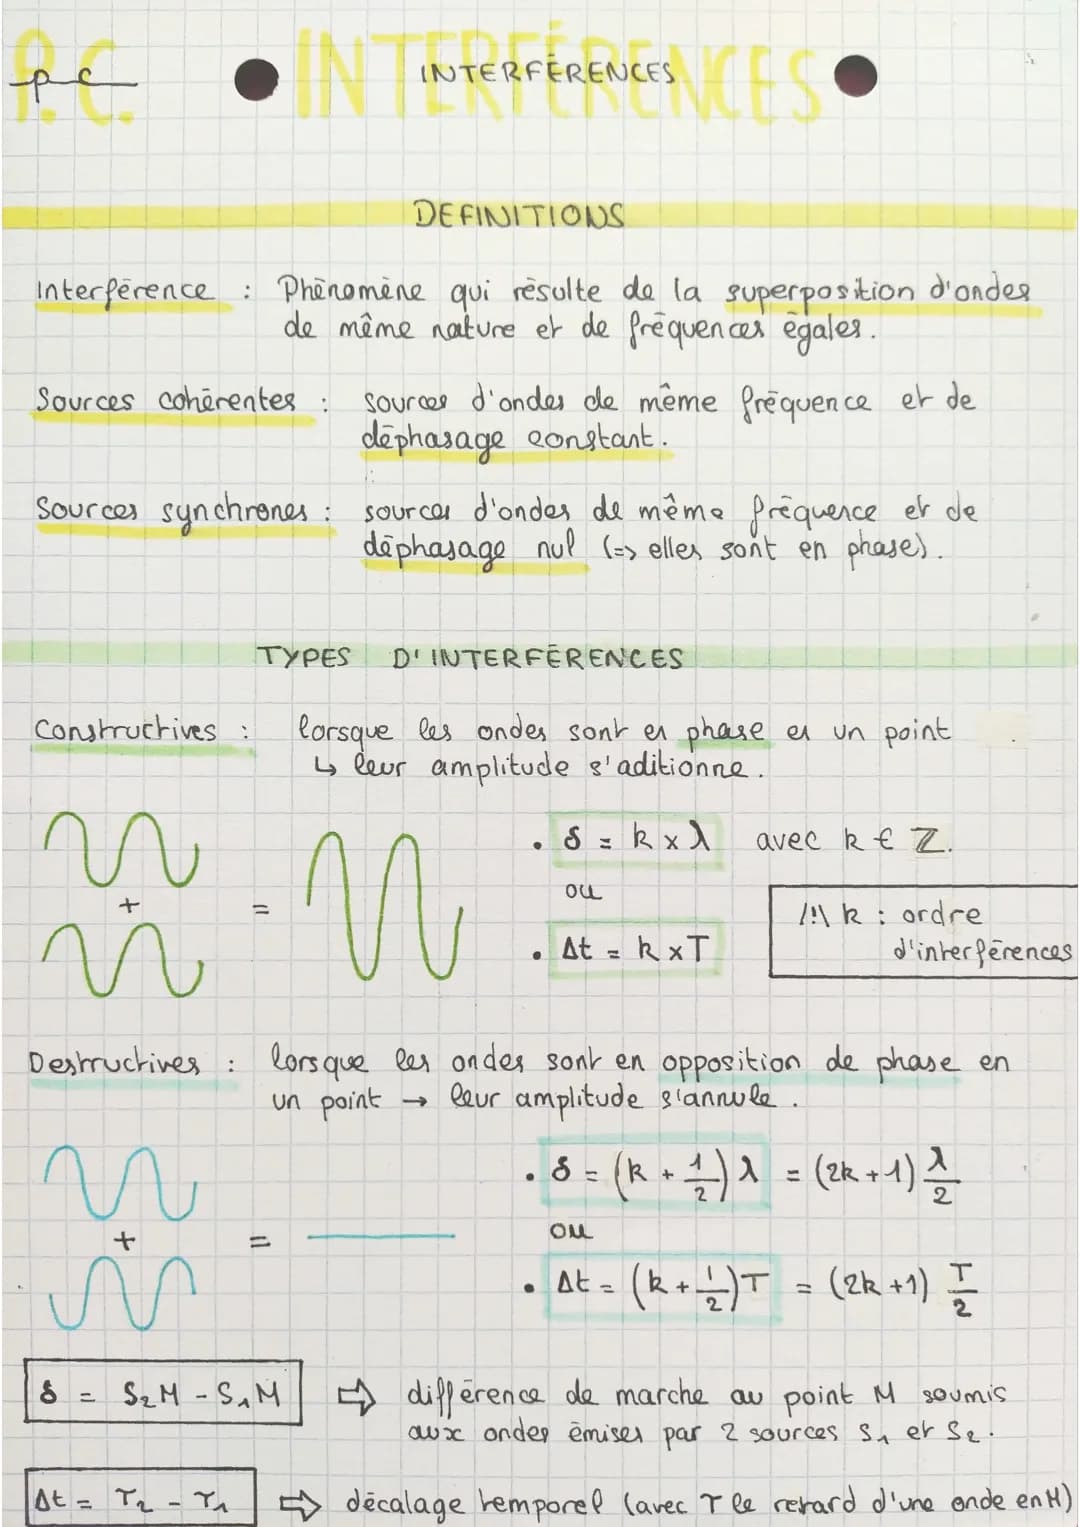 P.C. INTERFÉRENCES
pc INTERFÉRENCES
DEFINITIONS
Interférence : Phénomène qui résulte de la superposition d'ondes
de même nature et de fréquences égales.
Sources cohérentes : sources d'ondes de même fréquence et de
déphasage constant.
Sources synchrones : sources d'ondes de même fréquence et de
déphasage nul (=> elles sont en phase).
TYPES D'INTERFÉRENCES
Constructives : lorsque les ondes sont en phase en un point
↳ leur amplitude s'aditionne.
• δ = k x λ avec k ∈ ℤ.
+ =
ou
/!\ k : ordre
d'interférences
• Δt = k x T
Destructives : lorsque les ondes sont en opposition de phase en
un point → leur amplitude s'annule.
• δ = (k + 1/2) λ = (2k + 1) λ/2
+ =
ou
• Δt = (k + 1/2) T = (2k + 1) T/2
δ = S₂M - S₁M ⇨ différence de marche au point M soumis
aux ondes émises par 2 sources S₁ et S₂.
Δt = τ₂ - τ₁ ⇨ décalage temporel (avec τ le retard d'une onde en M)